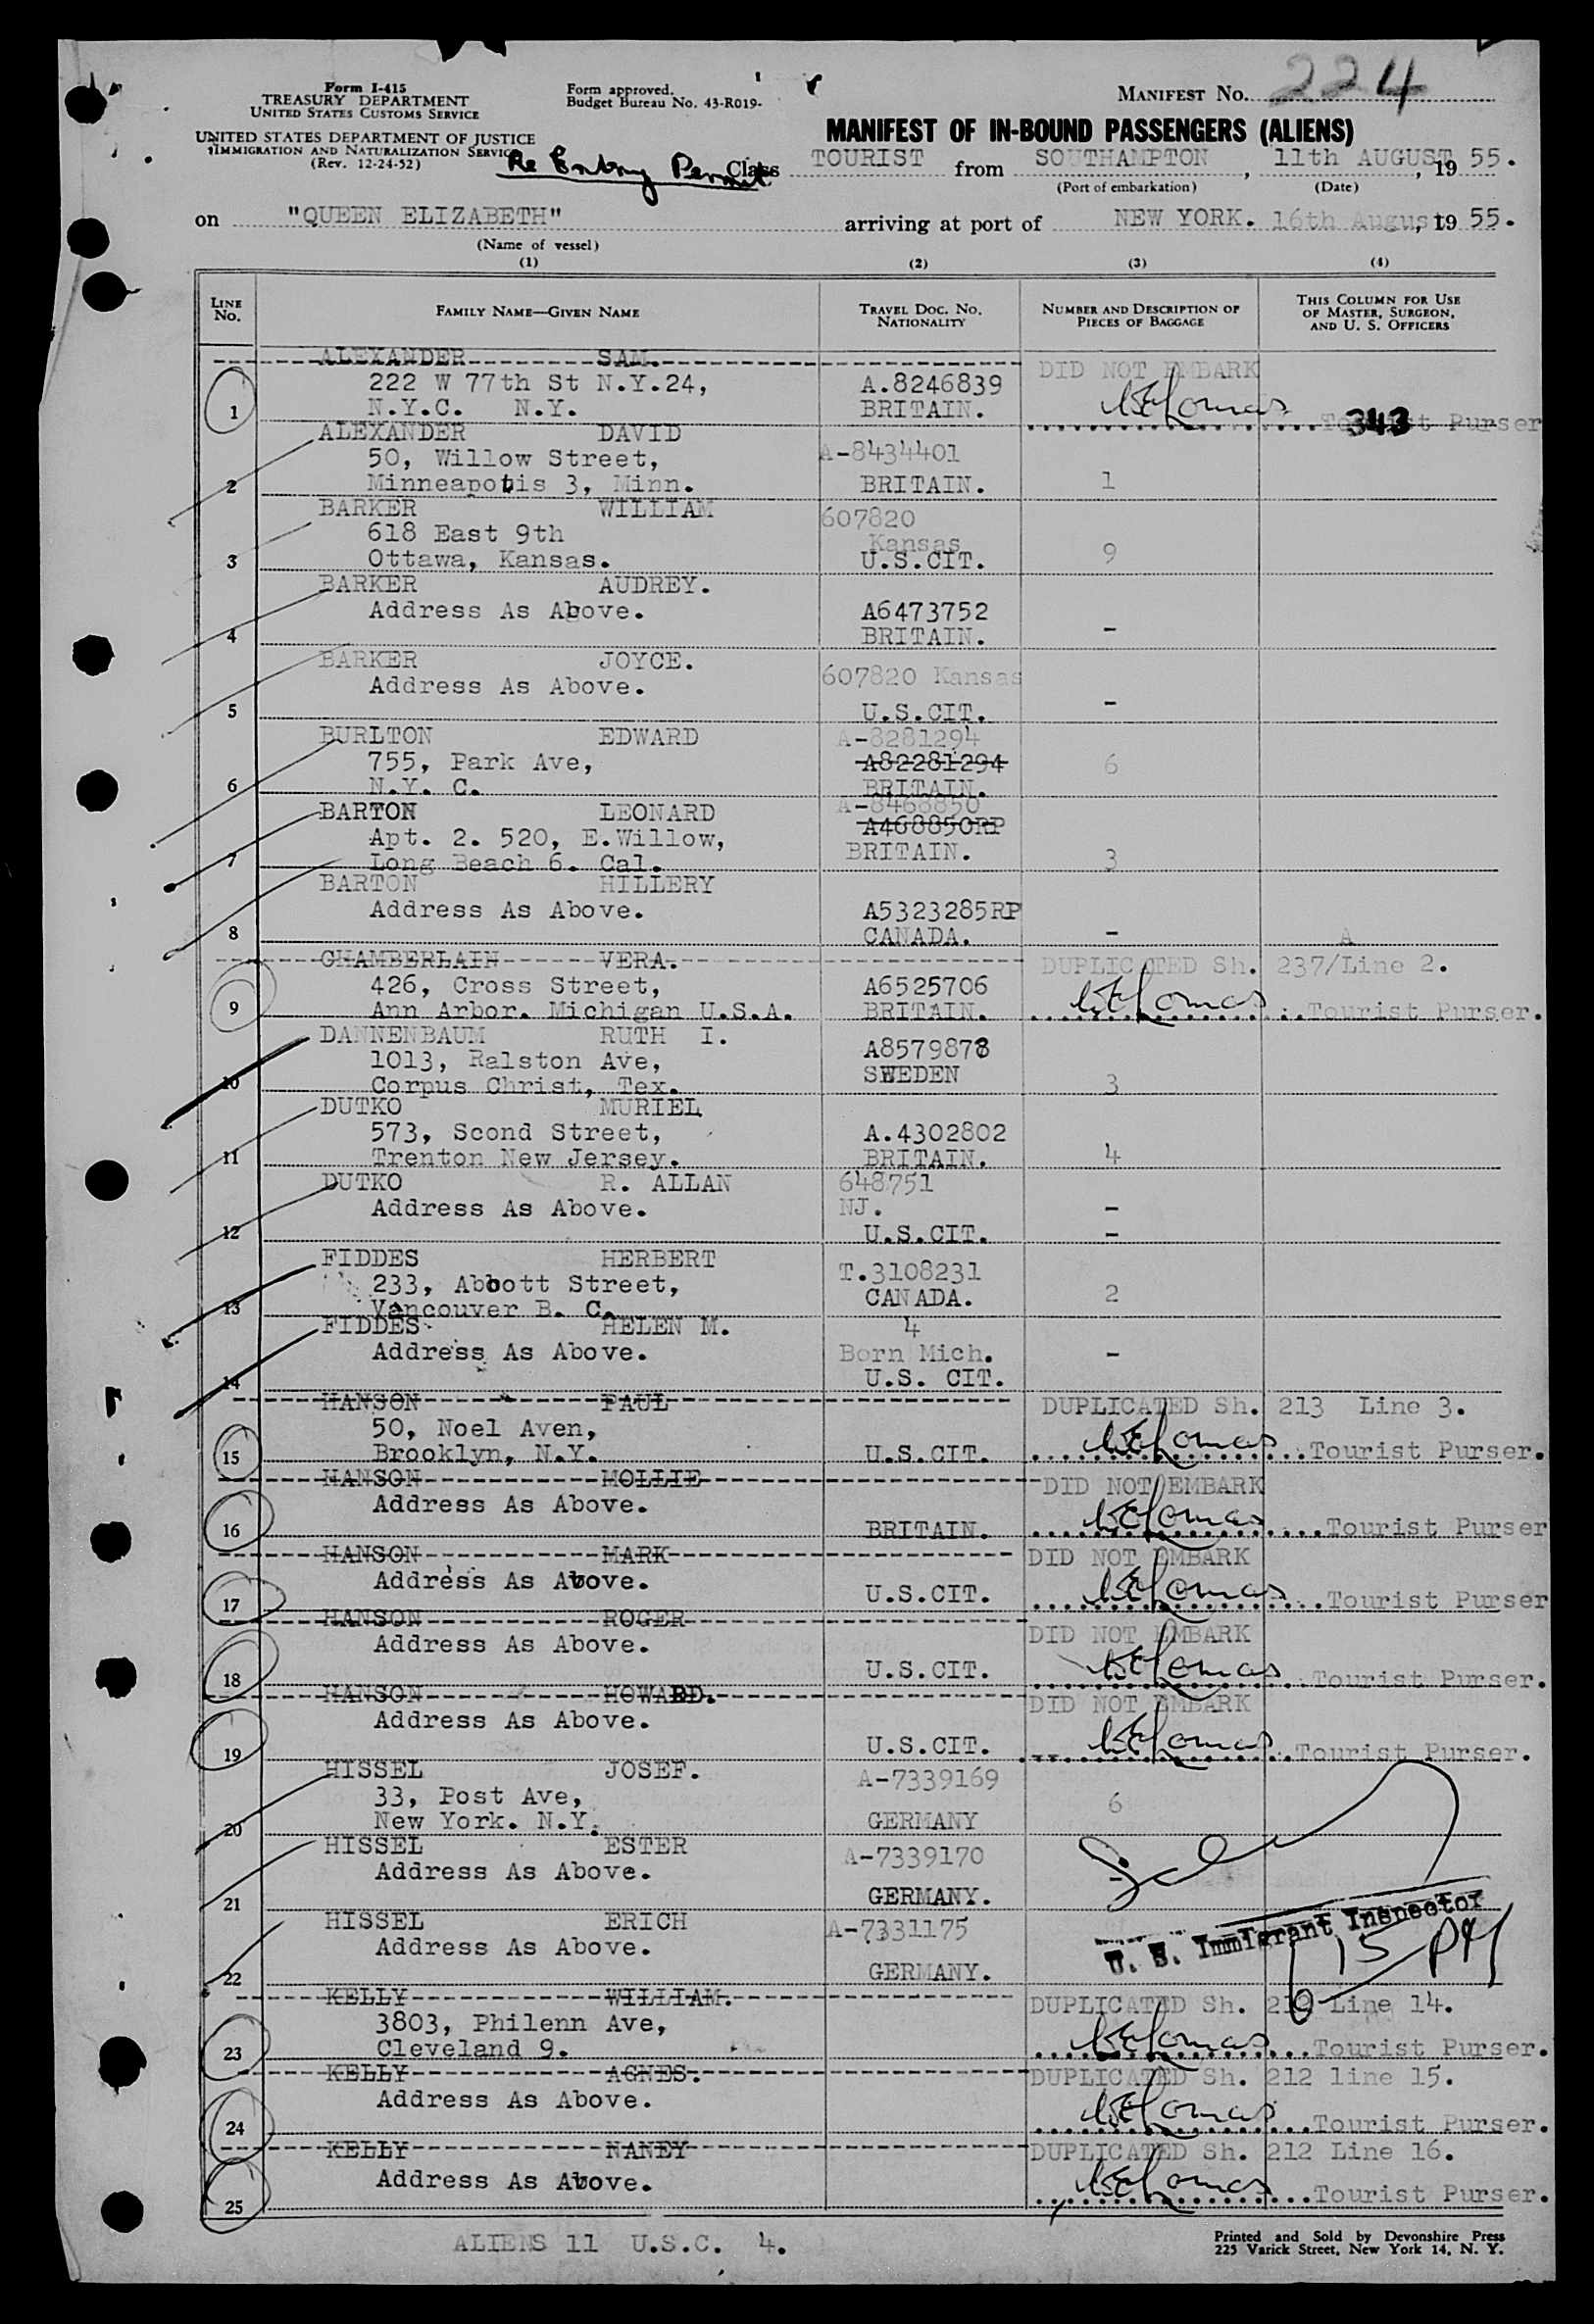 224
Form I-415
TREASURY DEPARTMENT
UNITED STATES CUSTOMS SERVICE
Form approved.
Budget Bureau No. 43-R019-
MANIFEST No.
UNITED STATES DEPARTMENT OF JUSTICE
IMMIGRATION AND NATURALIZATION SERVICE
(Rev. 12-24-52)
MANIFEST OF IN-BOUND PASSENGERS (ALIENS)
Re Entry Permit
Class TOURIST from SOUTHAMPTON, 11th AUGUST, 19 55.
(Port of embarkation) (Date)
on "QUEEN ELIZABETH" arriving at port of NEW YORK. 16th August, 19 55.
(Name of vessel)
(1) (2) (3) (4)
LINE No. FAMILY NAME—GIVEN NAME TRAVEL DOC. No. NATIONALITY NUMBER AND DESCRIPTION OF PIECES OF BAGGAGE THIS COLUMN FOR USE OF MASTER, SURGEON, AND U. S. OFFICERS
ALEXANDER SAM. DID NOT EMBARK
222 W 77th St N.Y.24, A.8246839
1 N.Y.C. N.Y. BRITAIN. Tourist Purser 343
ALEXANDER DAVID
50, Willow Street, A-8434401
2 Minneapolis 3, Minn. BRITAIN. 1
BARKER WILLIAM 607820
618 East 9th Kansas
3 Ottawa, Kansas. U.S.CIT. 9
BARKER AUDREY.
Address As Above. A6473752
4 BRITAIN. -
BARKER JOYCE. 607820 Kansas
Address As Above.
5 U.S.CIT. -
BURLTON EDWARD A-8281294
755, Park Ave, A82281294 6
6 N.Y. C. BRITAIN.
BARTON LEONARD A-8468850
Apt. 2. 520, E.Willow, A468850RP
7 Long Beach 6. Cal. BRITAIN. 3
BARTON HILLERY
Address As Above. A5323285RP
8 CANADA. - A
CHAMBERLAIN VERA. DUPLICATED Sh. 237/Line 2.
426, Cross Street, A6525706
9 Ann Arbor. Michigan U.S.A. BRITAIN. Tourist Purser.
DANNENBAUM RUTH I.
1013, Ralston Ave, A8579878
10 Corpus Christ, Tex. SWEDEN 3
DUTKO MURIEL
573, Scond Street, A.4302802
11 Trenton New Jersey. BRITAIN. 4
DUTKO R. ALLAN 648751
Address As Above. NJ. -
12 U.S.CIT. -
FIDDES HERBERT T.3108231
233, Abbott Street, CANADA. 2
13 Vancouver B. C.
FIDDES HELEN M. 4
Address As Above. Born Mich. -
14 U.S. CIT.
HANSON PAUL DUPLICATED Sh. 213 Line 3.
50, Noel Aven,
15 Brooklyn, N.Y. U.S.CIT. Tourist Purser.
HANSON MOLLIE DID NOT EMBARK
Address As Above.
16 BRITAIN. Tourist Purser
HANSON MARK DID NOT EMBARK
Address As Above.
17 U.S.CIT. Tourist Purser
HANSON ROGER DID NOT EMBARK
Address As Above.
18 U.S.CIT. Tourist Purser.
HANSON HOWARD. DID NOT EMBARK
Address As Above.
19 U.S.CIT. Tourist Purser.
HISSEL JOSEF. A-7339169
33, Post Ave, 6
20 New York. N.Y. GERMANY
HISSEL ESTER A-7339170
Address As Above.
21 GERMANY. -
HISSEL ERICH A-7331175
Address As Above. U. S. Immigrant Inspector
22 GERMANY. 6 15 PM
KELLY WILLIAM. DUPLICATED Sh. 212 Line 14.
3803, Philenn Ave,
23 Cleveland 9. Tourist Purser.
KELLY AGNES. DUPLICATED Sh. 212 line 15.
Address As Above.
24 Tourist Purser.
KELLY NANEY DUPLICATED Sh. 212 Line 16.
Address As Above.
25 Tourist Purser.
ALIENS 11 U.S.C. 4.
Printed and Sold by Devonshire Press
225 Varick Street, New York 14, N. Y.